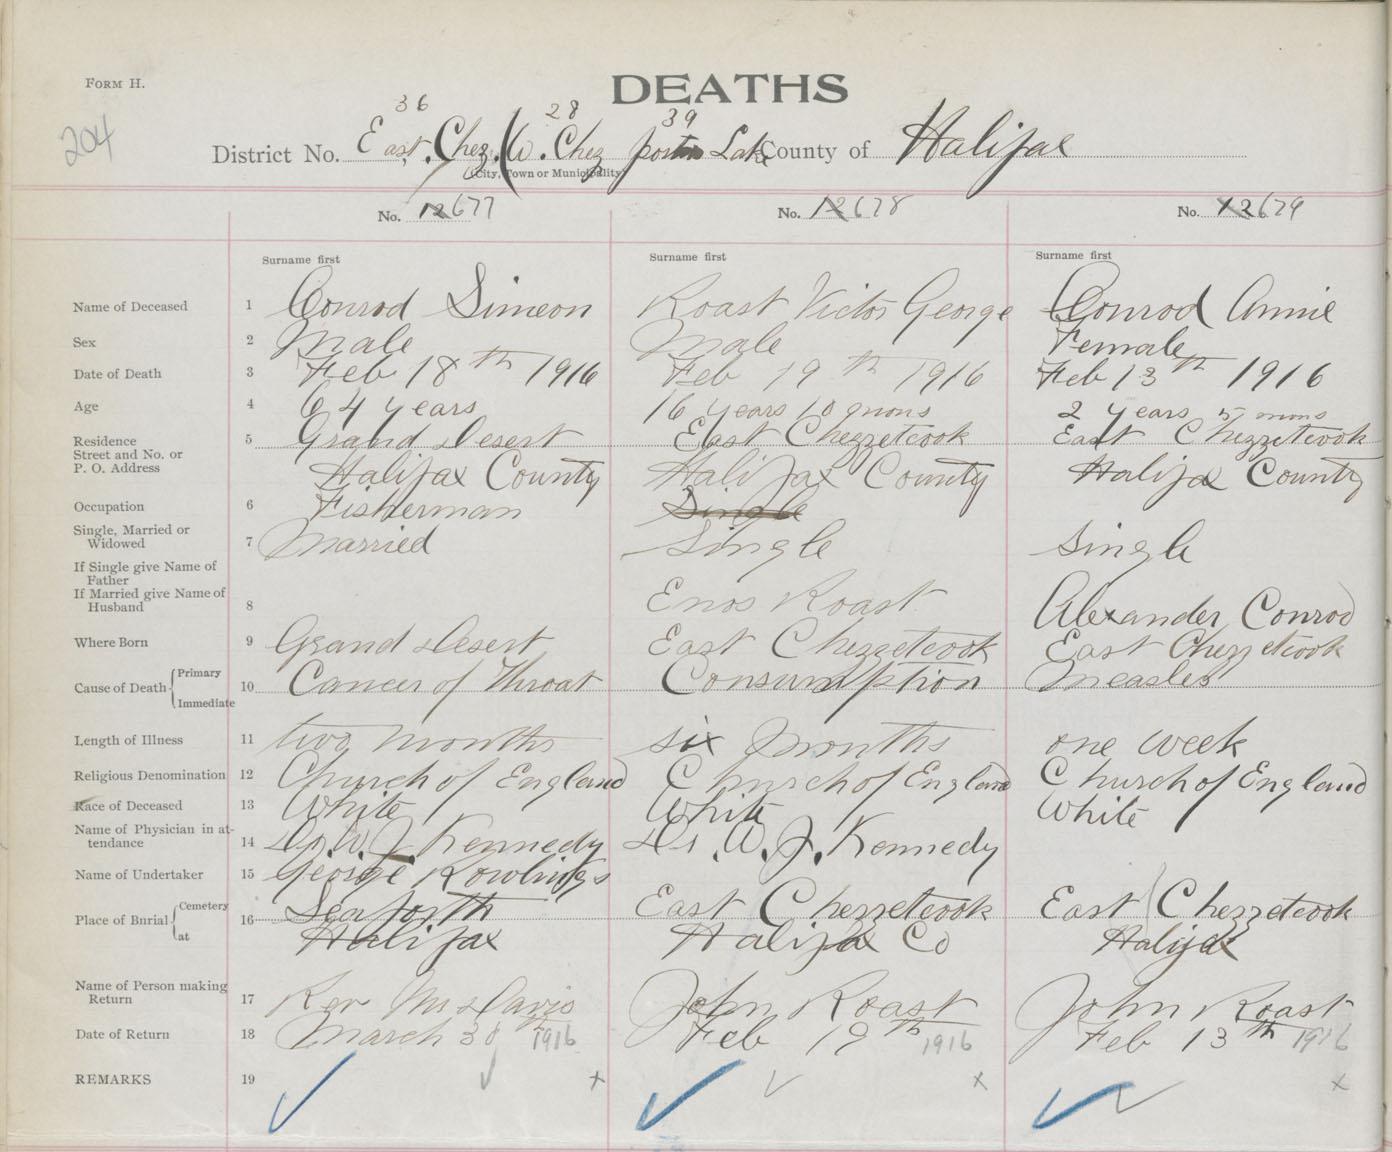 FORM H.
DEATHS
204
36 28 39
District No. East. Chez. (W. Chez Porters Lake County of Halifax
(City, Town or Municipality)
No. 12677 No. 12678 No. 12679
Surname first Surname first Surname first
Name of Deceased 1 Conrod Simeon Roast Victor George Conrod Annie
Sex 2 Male Male Female
Date of Death 3 Feb 18th 1916 Feb 19th 1916 Feb 13th 1916
Age 4 64 years 16 years 10 mons 2 years 5 mons
Residence 5 Grand Desert East Chezzetcook East Chezzetcook
Street and No. or
P. O. Address Halifax County Halifax County Halifax County
Occupation 6 Fisherman Single
Single, Married or
Widowed 7 Married Single Single
If Single give Name of
Father
If Married give Name of
Husband 8 Enos Roast Alexander Conrod
Where Born 9 Grand Desert East Chezzetcook East Chezzetcook
Cause of Death Primary
Immediate 10 Cancer of Throat Consumption Measles
Length of Illness 11 two months six months one week
Religious Denomination 12 Church of England Church of England Church of England
Race of Deceased 13 White White White
Name of Physician in at-
tendance 14 Dr. W. J. Kennedy Dr. W. J. Kennedy
Name of Undertaker 15 George Rowlings
Place of Burial Cemetery
at 16 Seaforth East Chezzetcook East Chezzetcook
Halifax Halifax Co Halifax
Name of Person making
Return 17 Rev Davis John Roast John Roast
Date of Return 18 March 1916 Feb 19th 1916 Feb 13th 1916
REMARKS 19